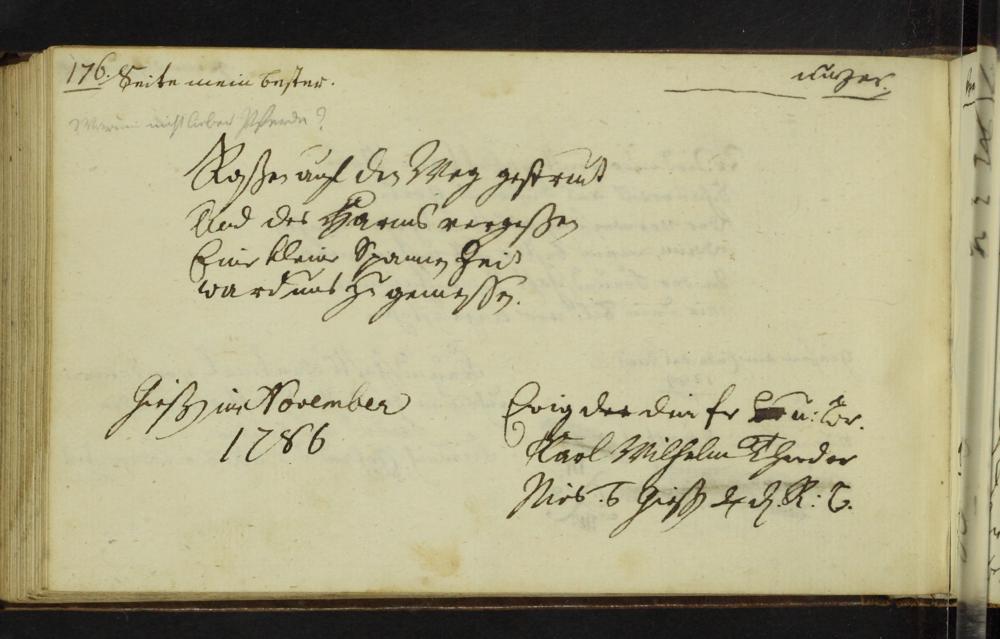 176. Seite mein bester.
Warum nicht lieber Pferde?
Roßen auf den Weg gestreut
Und des Harms vergeßen
Eine kleine Spannen Zeit
ward uns zu gemessen.
Gießen im November
1786
Ewig der dein fr u: Br.
Karl Wilhelm Theodor
Gieß d. R: C.